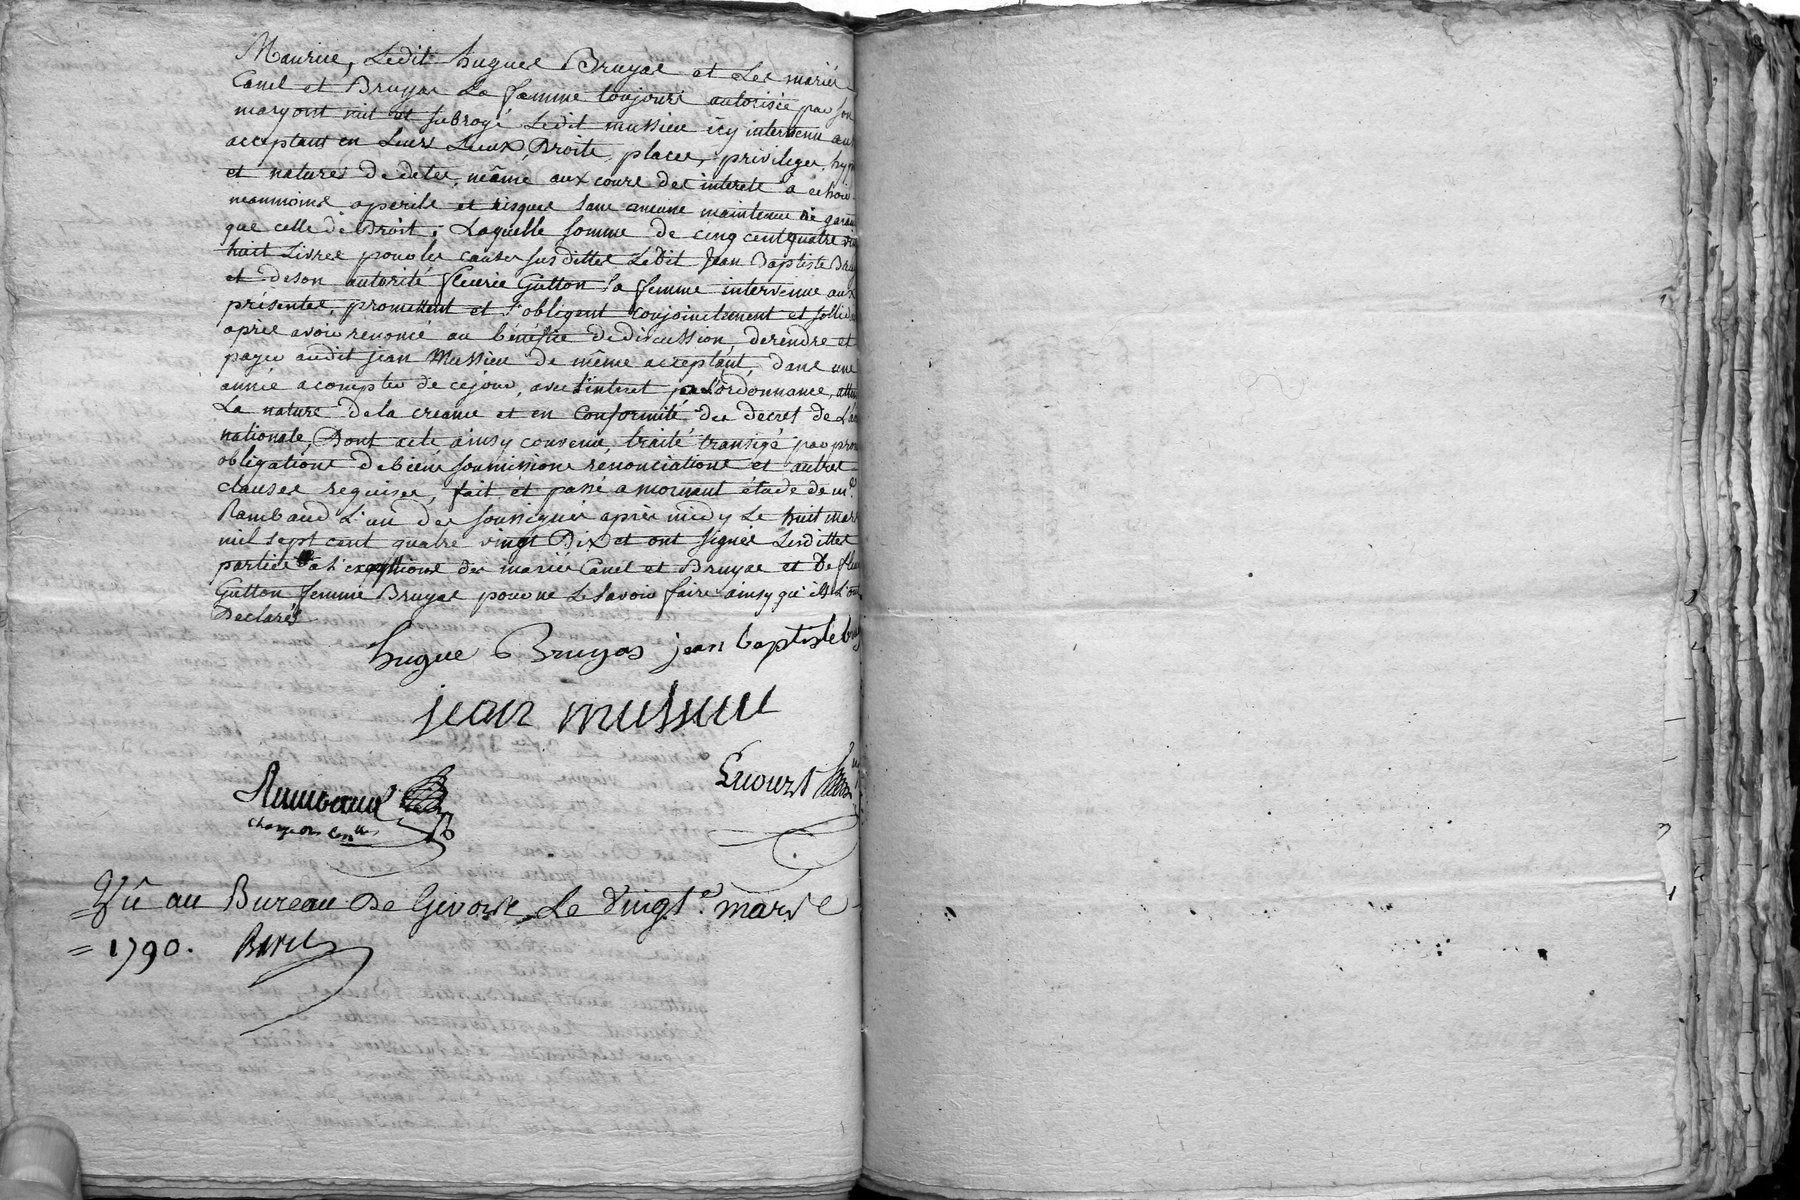 Maurice, Ledit hugues Bruyas et Les mariés
Canel et Bruyas La femme toujours autorisée par son
mary ont mit et subrogé Ledit mussieu icy intervenu aux
acceptant en Leurs Lieux, Droits, places, privileges, hyp
et natures de detes, même aux cours des interets a echoir
neanmoins a perils et risques sans aucune maintenue ni garan
que celle de Droit, Laquelle somme de cinq cent quatre vin
huit Livres pour les causes susdittes Ledit Jean Baptiste Bru
et de son autorité fleurie Gutton sa femme intervenue aux
presentes, promettent et s'obligent conjoinctement et sollid
après avoir renoncé au bénéfice de discussion, de rendre et
payer audit jean Mussieu de même acceptant, dans une
année a compter de ce jour, avec l'interet par L'ordonnance, atten
La nature de la creance et en conformité des decret de L'as
nationale, Dont acte ainsy convenu, traité transigé par prom
obligations de biens soumissions rénonciations et autres
clauses requises, fait et passé a mornant étude de me
Rambaud L'un des soussignés après midy Le huit mars
mil sept cent quatre vingt Dix et ont signés Lesdittes
parties a L'exeptions des mariés Canel et Bruyas et De fleu
Gutton femme Bruyas pour ne Le savoir faire ainsy qu'ils L'ont
Declarés
hugue Bruyas jean baptiste bruy
jean mussieu
Rambaud
Vû au Bureau de Givors Le Vingt mars
= 1790.